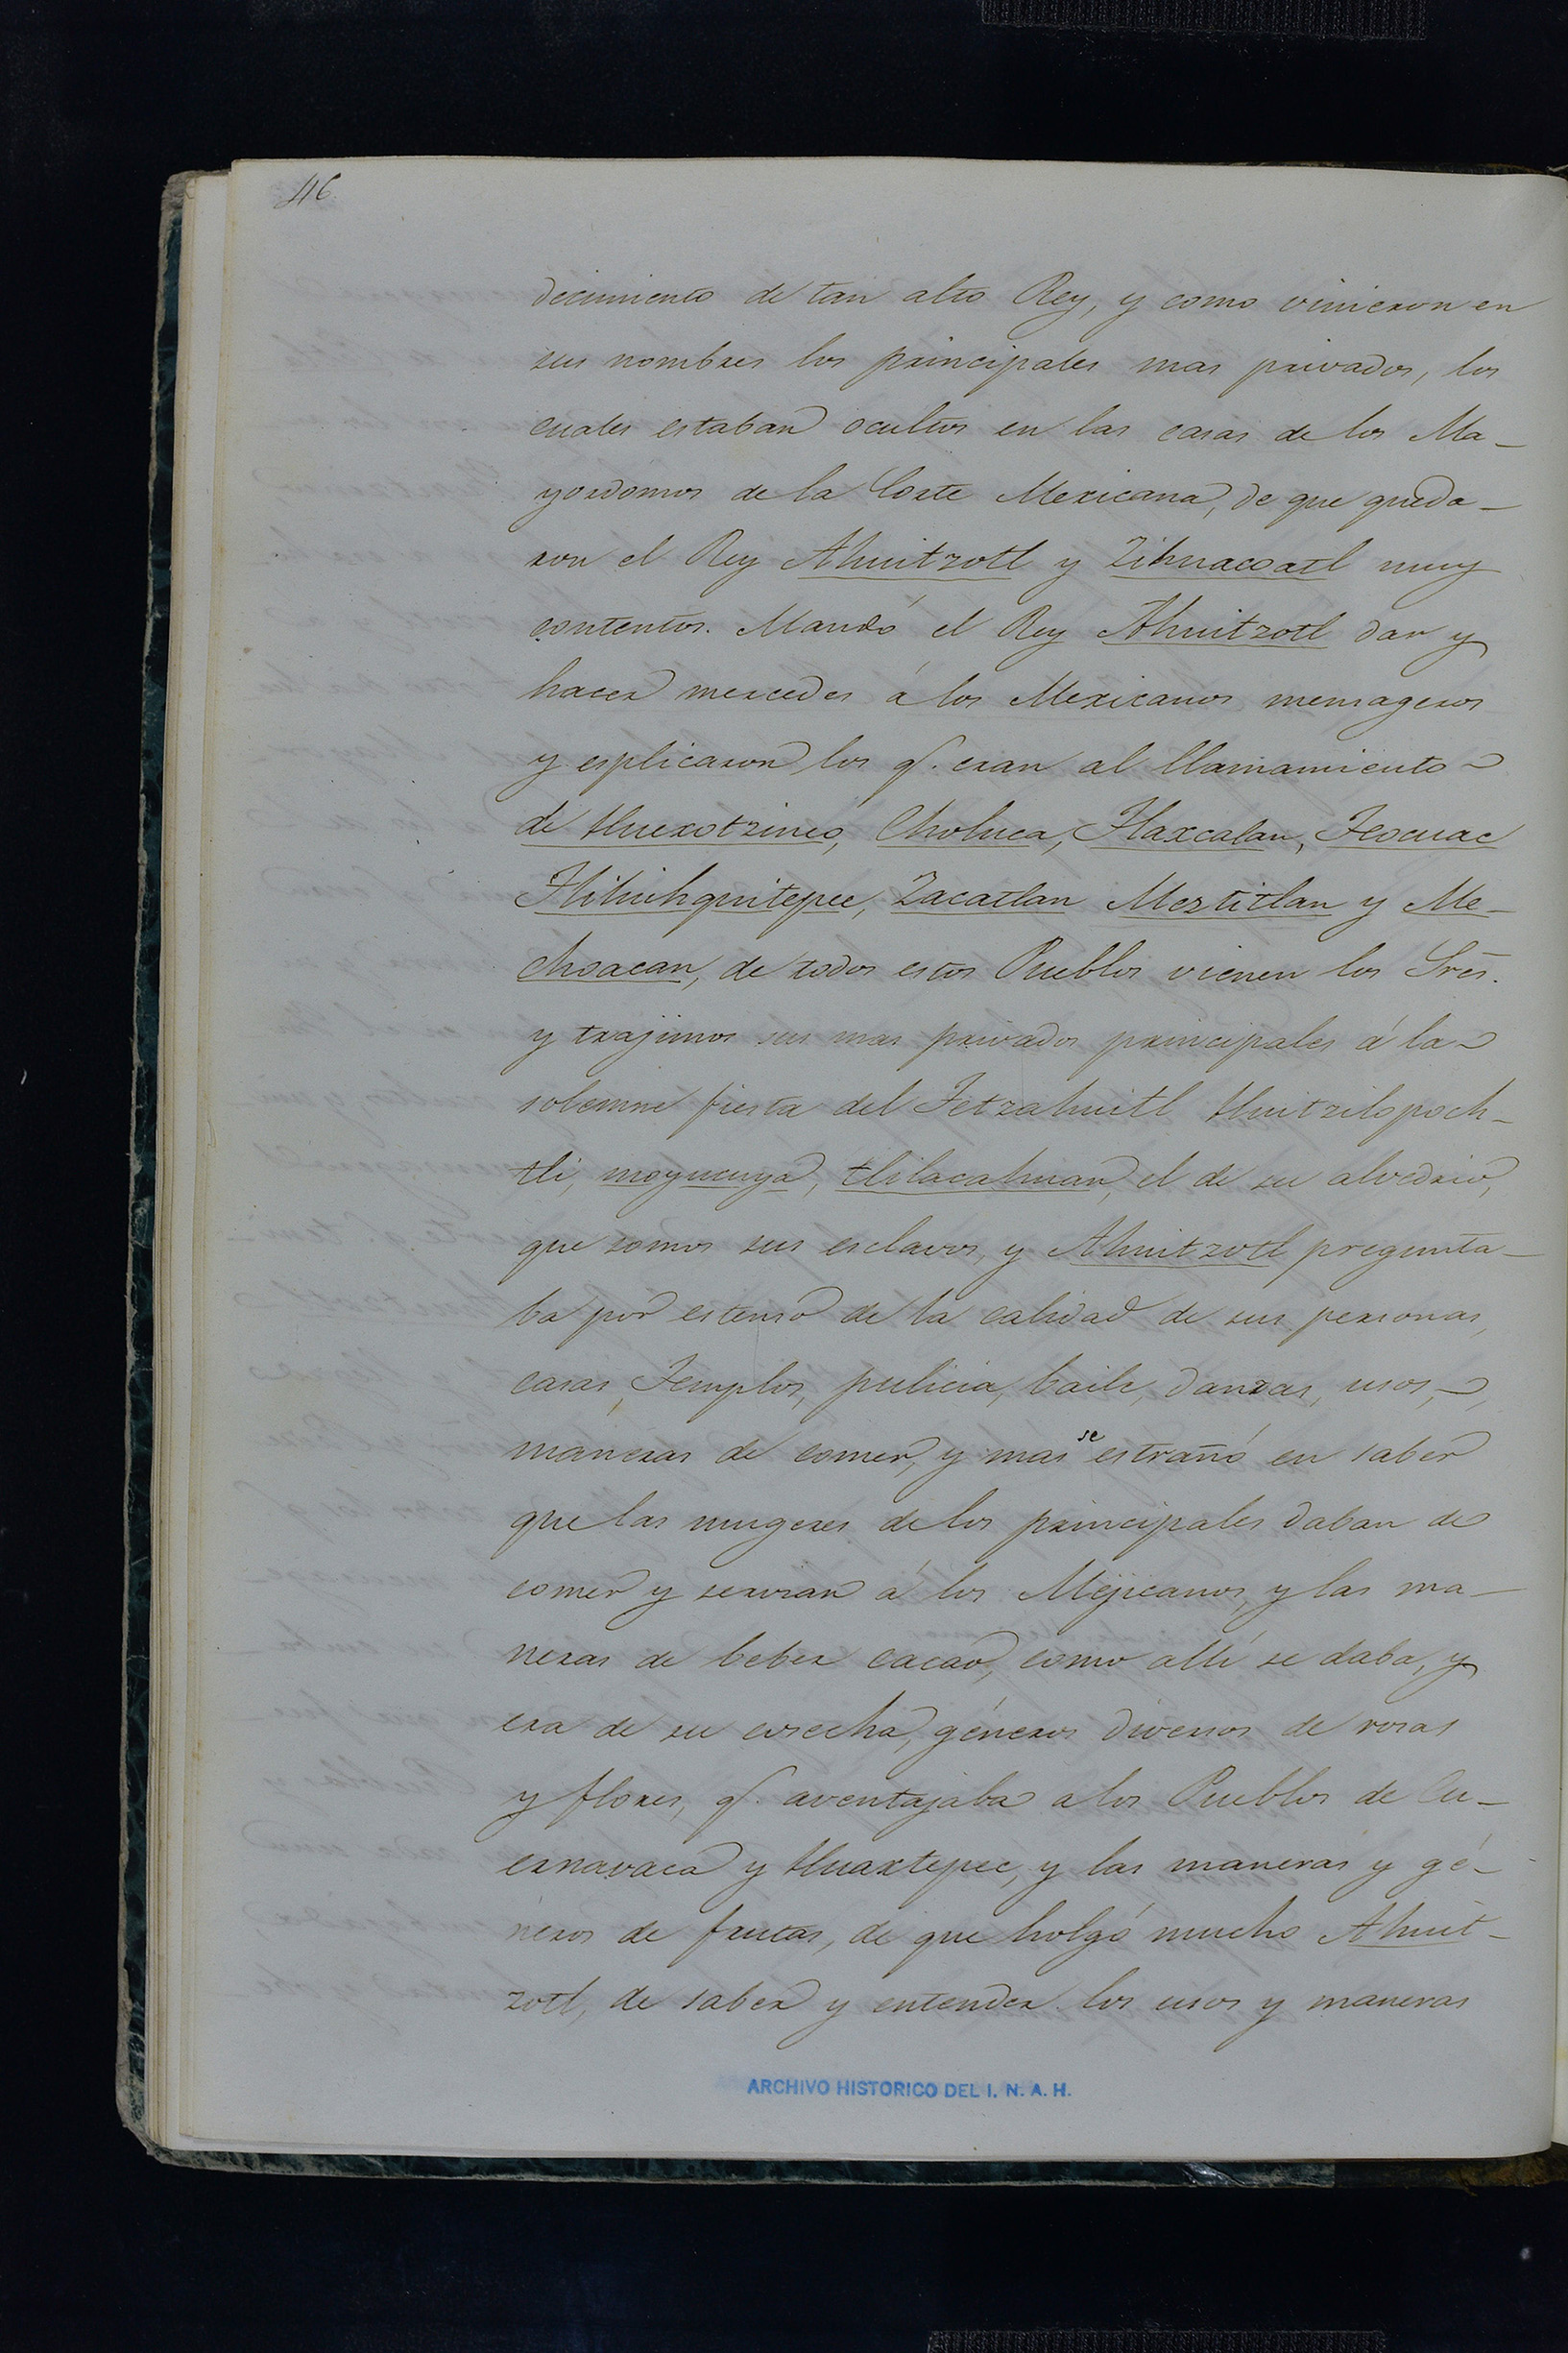 46
decimiento de tan alto Rey, y como vinieron en
sus nombres los principales mas privados, los
cuales estaban ocultos en las casas de los Ma-
yordomos de la Corte Mexicana, de que queda-
ron el Rey Ahuitzotl y Zihuacoatl muy
contentos. Mandó el Rey Ahuitzotl dar y
hacer mercedes á los Mexicanos mensageros
y esplicaron los q. eran al llamamiento
de Huexotzinco, Choluca, Tlaxcalan, Tecuac
Tlihuihquitepec, Zacatlan Meztitlan y Me-
choacan, de todos estos Pueblos vienen los Sres.
y trajimos sus mas privados principales á la
solemne fiesta del Tetzahuitl Huitzilopoch-
tli, moyucuya, tlilacahuan, el de su alvedrio,
que somos sus esclavos, y Ahuitzotl pregunta-
ba por estenso de la calidad de sus personas,
casas, Templos, pulicia, baile, danzas, usos,
maneras de comer, y mas se estrañó en saber
que las mugeres de los principales daban de
comer y servian á los Mejicanos, y las ma-
neras de beber cacao, como allí se daba, y
era de su cosecha, géneros diversos de rosas
y flores, q. aventajaba a los Pueblos de Cu-
ernavaca y Huaxtepec, y las maneras y gé-
neros de frutas, de que holgó mucho Ahuit-
zotl, de saber y entender los usos y maneras
ARCHIVO HISTORICO DEL I. N. A. H.